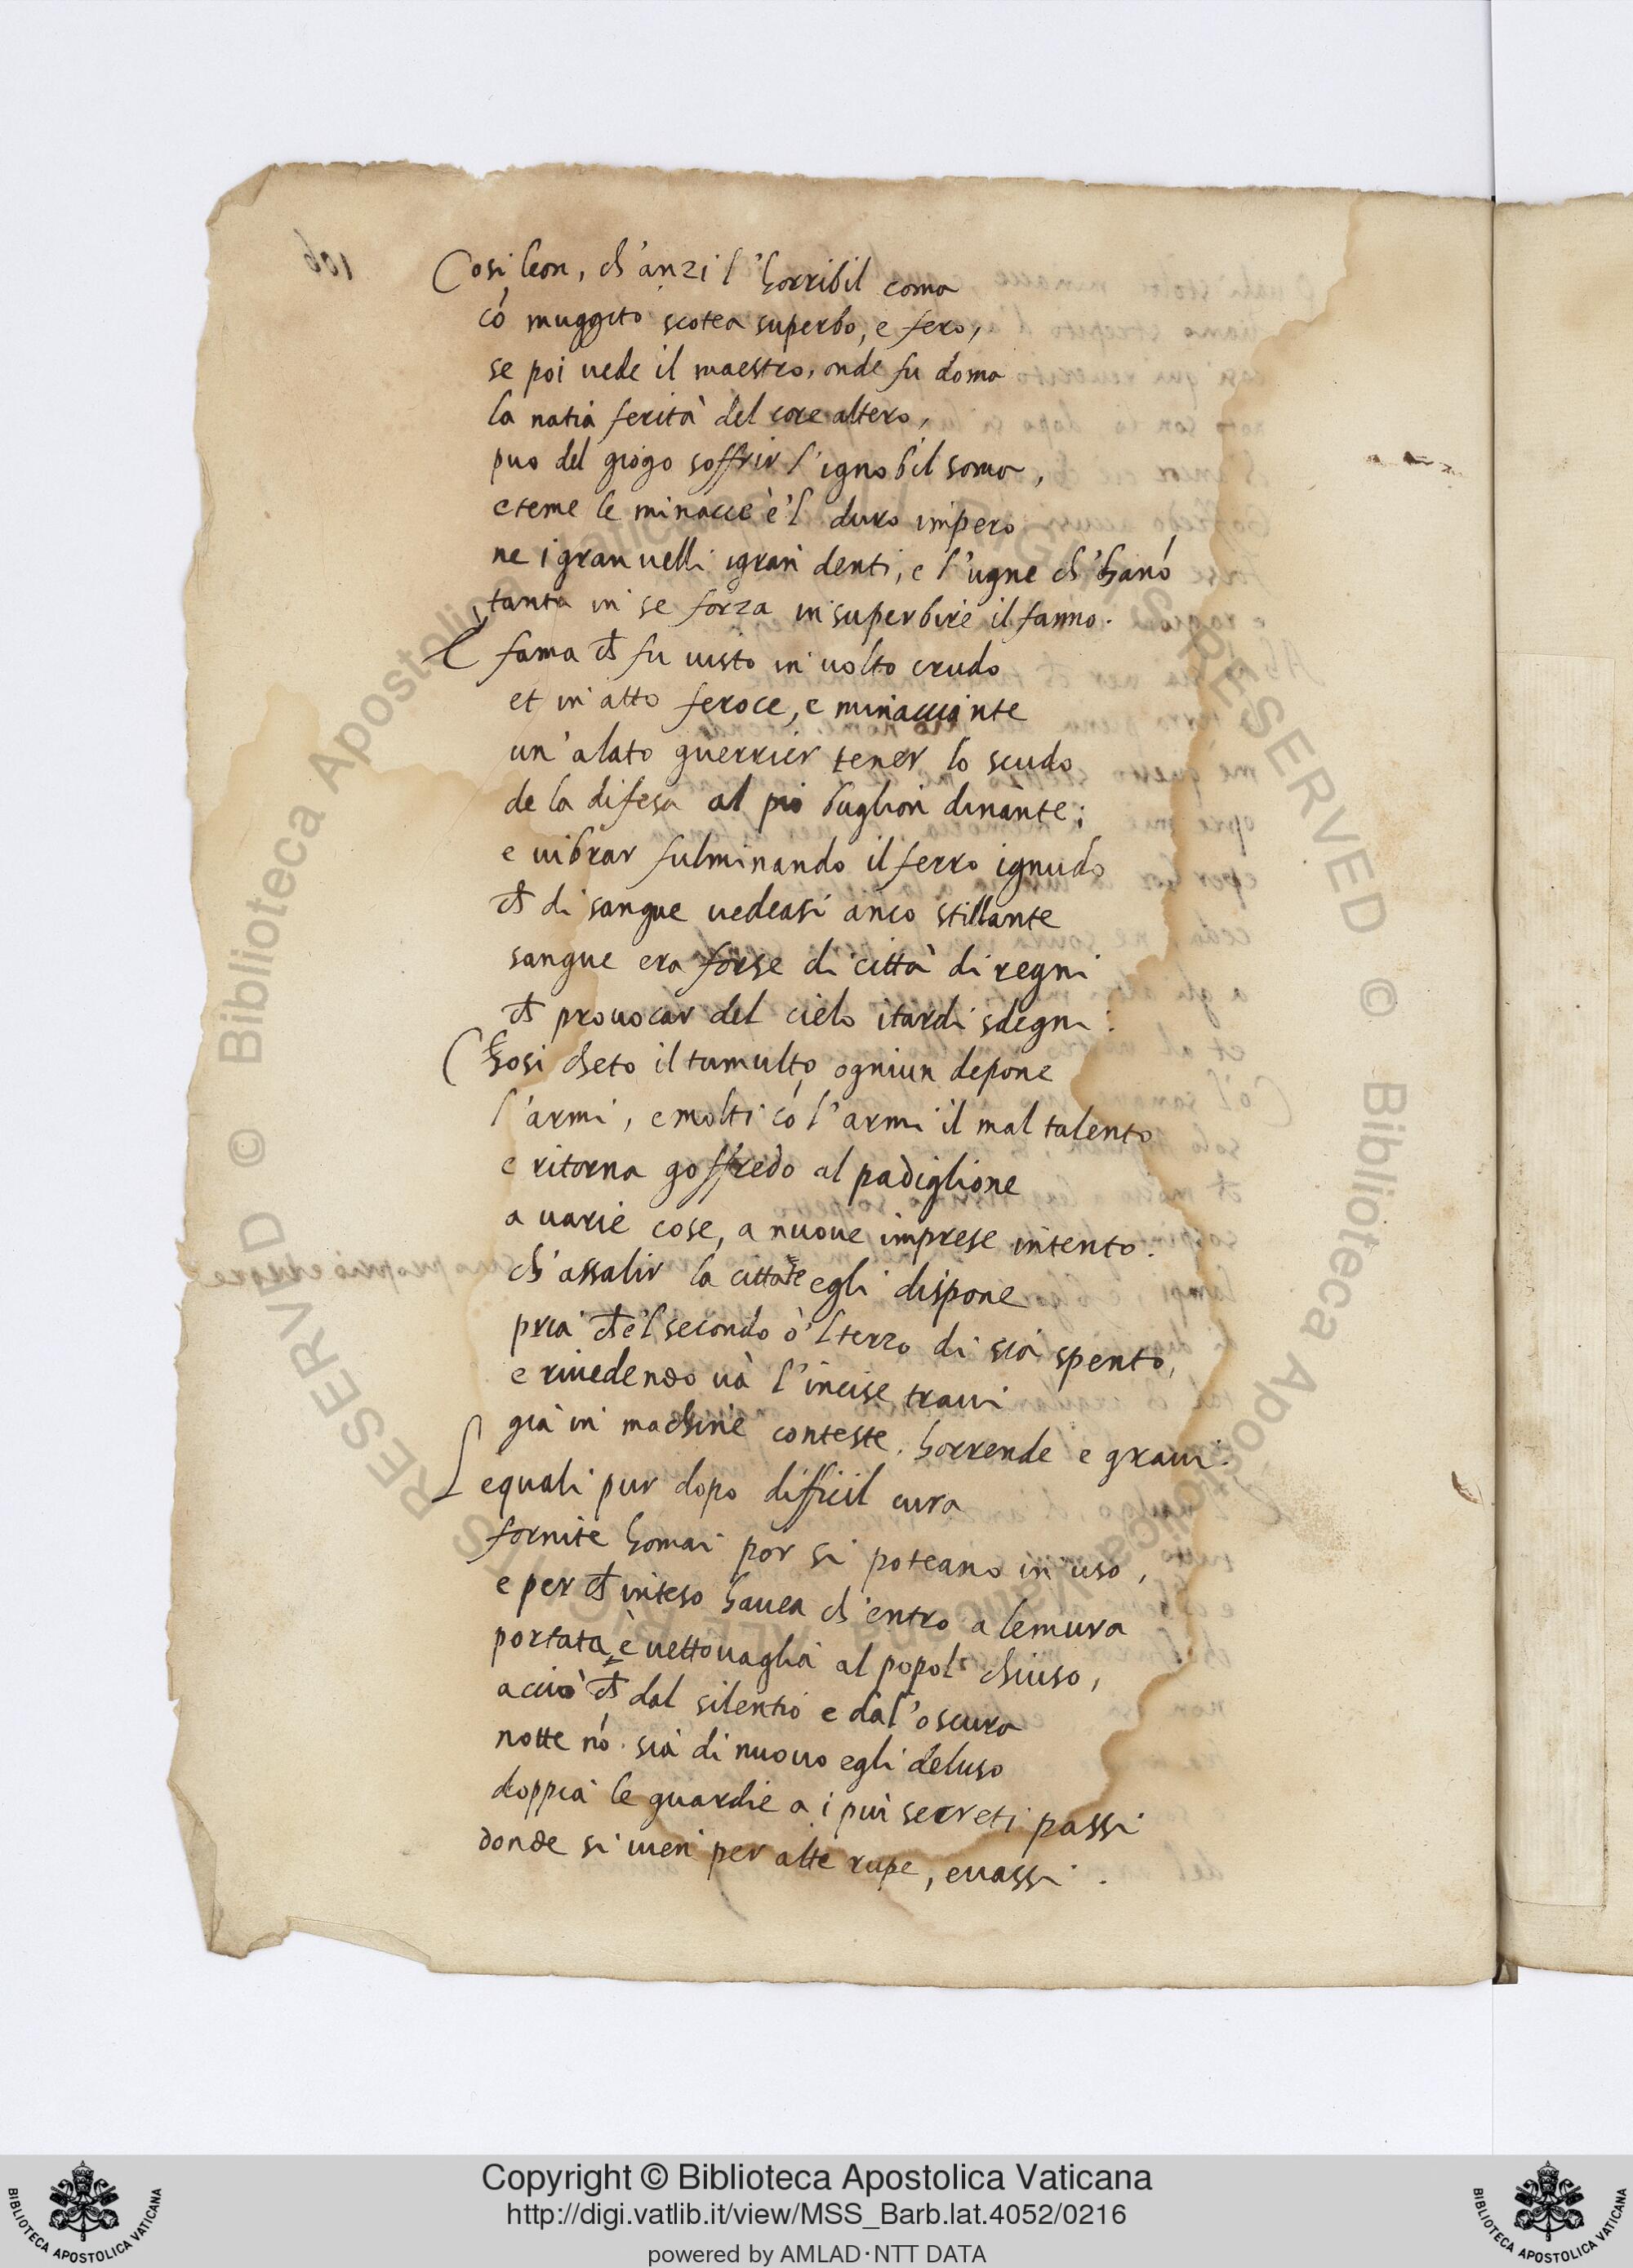 Cosi leon, ch'anzi l'horribil coma
có muggito scotea superbo, e fero,
se poi uede il maestro, onde fu doma
la natia ferità del core altero,
puo del giogo soffrir l'ignobil soma,
e teme le minacce è'l duro impero
ne i gran uelli i gran denti, e l'ugne ch'hanó
tanta in se forza insuperbire il fanno.
E fama ch fu uisto in uolto crudo
et in atto feroce, e minacciante
un'alato guerrier tener lo scudo
de la difesa al pio buglion dinante;
e uibrar fulminando il ferro ignudo
ch di sangue uedeasi anco stillante
sangue era forse di città di regni
ch prouocar del cielo i tardi sdegni.
Chosi cheto il tumulto, ogniun depone
l'armi, e molti có l'armi il mal talento
e ritorna goffredo al padiglione
a uarie cose, a nuoue imprese intento.
ch'assalir la cittate egli dispone
pria ch e'l secondo ò'l terzo di sia spento,
e riuedendo uà l'incise traui
già in machine conteste, horrende e graui.
Le quali pur dopo difficil cura
fornite homai por si poteano in uso,
e per ch inteso hauea ch'entro a le mura
portata è uettouaglia al popol chiuso,
acciò ch dal silentio e dal'oscura
notte nó sia di nuouo egli deluso
doppia le guardie a i piu secreti passi
donde si uien per alte rupe, e uassi.
106
Copyright © Biblioteca Apostolica Vaticana
http://digi.vatlib.it/view/MSS_Barb.lat.4052/0216
powered by AMLAD·NTT DATA
BIBLIOTECA APOSTOLICA VATICANA
BIBLIOTECA APOSTOLICA VATICANA